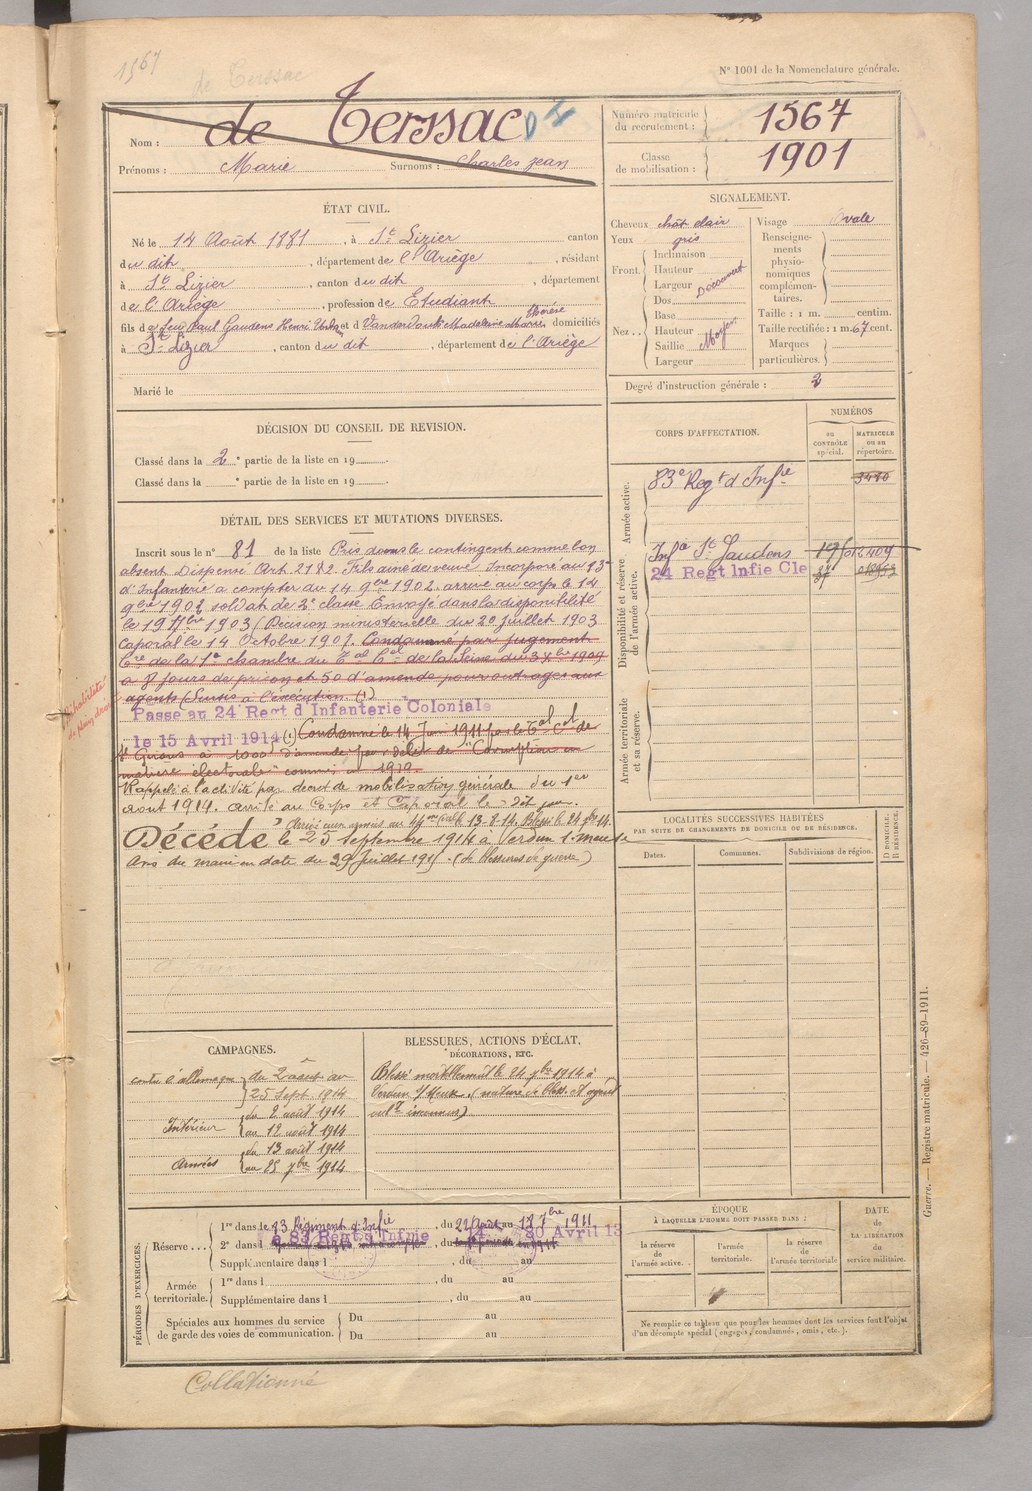 1567
de Terssac
N° 1001 de la Nomenclature générale.
Nom : de Terssac
Prénoms : Marie Surnoms : Charles Jean
Numéro matricule du recrutement : 1567
Classe de mobilisation : 1901
ÉTAT CIVIL.
Né le 14 Août 1881, à St Lizier canton
du dit, département de l'Ariège, résidant
à St Lizier, canton du dit, département
de l'Ariège, profession de Etudiant
fils de feu Paul Gaudens Henri Urbain et d Madeleine Marie Thérèse, domiciliés
à St Lizier, canton du dit, département de l'Ariège
Marié le
SIGNALEMENT.
Cheveux chât clair
Yeux gris
Front. Inclinaison
Hauteur
Largeur Découvert
Nez. Dos
Base
Hauteur
Saillie Moyen
Largeur
Visage Ovale
Renseignements physionomiques complémentaires.
Taille : 1 m. centim.
Taille rectifiée : 1 m. 67 cent.
Marques particulières.
Degré d'instruction générale : 2
DÉCISION DU CONSEIL DE REVISION.
Classé dans la 2e partie de la liste en 19
Classé dans la e partie de la liste en 19
CORPS D'AFFECTATION.
NUMÉROS
au CONTRÔLE spécial.
MATRICULE ou au répertoire.
Armée active.
83e Regt d'Infie
Disponibilité et réserve de l'armée active.
Infie St Gaudens
24 Regt Infie Cle
Armée territoriale et sa réserve.
DÉTAIL DES SERVICES ET MUTATIONS DIVERSES.
Inscrit sous le n° 81 de la liste Pris dans le contingent comme bon
absent Dispensé Art. 21 82. Fils aîné de veuve Incorporé au
d'Infanterie à compter du 14 9bre 1902. arrivé au corps le 14
9bre 1902 soldat de 2e classe Envoyé dans la disponibilité
le 19 7bre 1903 (Décision ministerielle du 20 juillet 1903
Caporal le 14 Octobre 1907. Condamné par jugement
Cre de la 1e chambre du Tal Cel de la Seine du 3 Xbre 1909
à 8 jours de prison et 50 d'amende pour outrages aux
agents (Sursis à l'exécution. (1)
Passé au 24 Regt d'Infanterie Coloniale
le 15 Avril 1914 (1) Condamné le 14 Juin 1911 par le Tal Cel de
St Girons à 1000 d'amende pour délit de "Corruption en
matière électorale" commis en 1910.
Rappelé à l'activité par decret de mobilisation générale du 1er
août 1914. Arrivé au Corps et Caporal le dit jour.
le 13.8.14. Blessé le 24 7bre 14.
Décédé le 25 Septembre 1914 à Verdun s. meuse
Avis du mairie en date du 29 Juillet 1915. (de blessures de guerre)
LOCALITÉS SUCCESSIVES HABITÉES
PAR SUITE DE CHANGEMENTS DE DOMICILE OU DE RÉSIDENCE.
Dates. Communes. Subdivisions de région. D DOMICILE. R RÉSIDENCE.
CAMPAGNES.
contre l'allemagne du 2 août au
25 Sept 1914
Intérieur du 2 août 1914
au 12 août 1914
Armées du 13 août 1914
au 25 7bre 1914
BLESSURES, ACTIONS D'ÉCLAT,
DÉCORATIONS, ETC.
Blessé mortellement le 24 7bre 1914 à
Verdun s/ Meuse. (nature de bless. et agent
inconnus)
PÉRIODES D'EXERCICES.
Réserve... 1re dans le 83 Régiment d'Infie, du 22 Août au 17 7bre 1911
2e dans le 83 Regt d'Infnie, du au 30 Avril 13
Supplémentaire dans l , du au
Armée territoriale. 1re dans l , du au
Supplémentaire dans l , du au
Spéciales aux hommes du service de garde des voies de communication. Du au
Du au
ÉPOQUE
À LAQUELLE L'HOMME DOIT PASSER DANS :
la réserve de l'armée active.
l'armée territoriale.
la réserve de l'armée territoriale
DATE de LA LIBÉRATION du service militaire.
Ne remplir ce tableau que pour les hommes dont les services font l'objet
d'un décompte spécial (engagés, condamnés, omis, etc.).
Guerre. — Registre matricule. — 426-89-1911.
Collationné